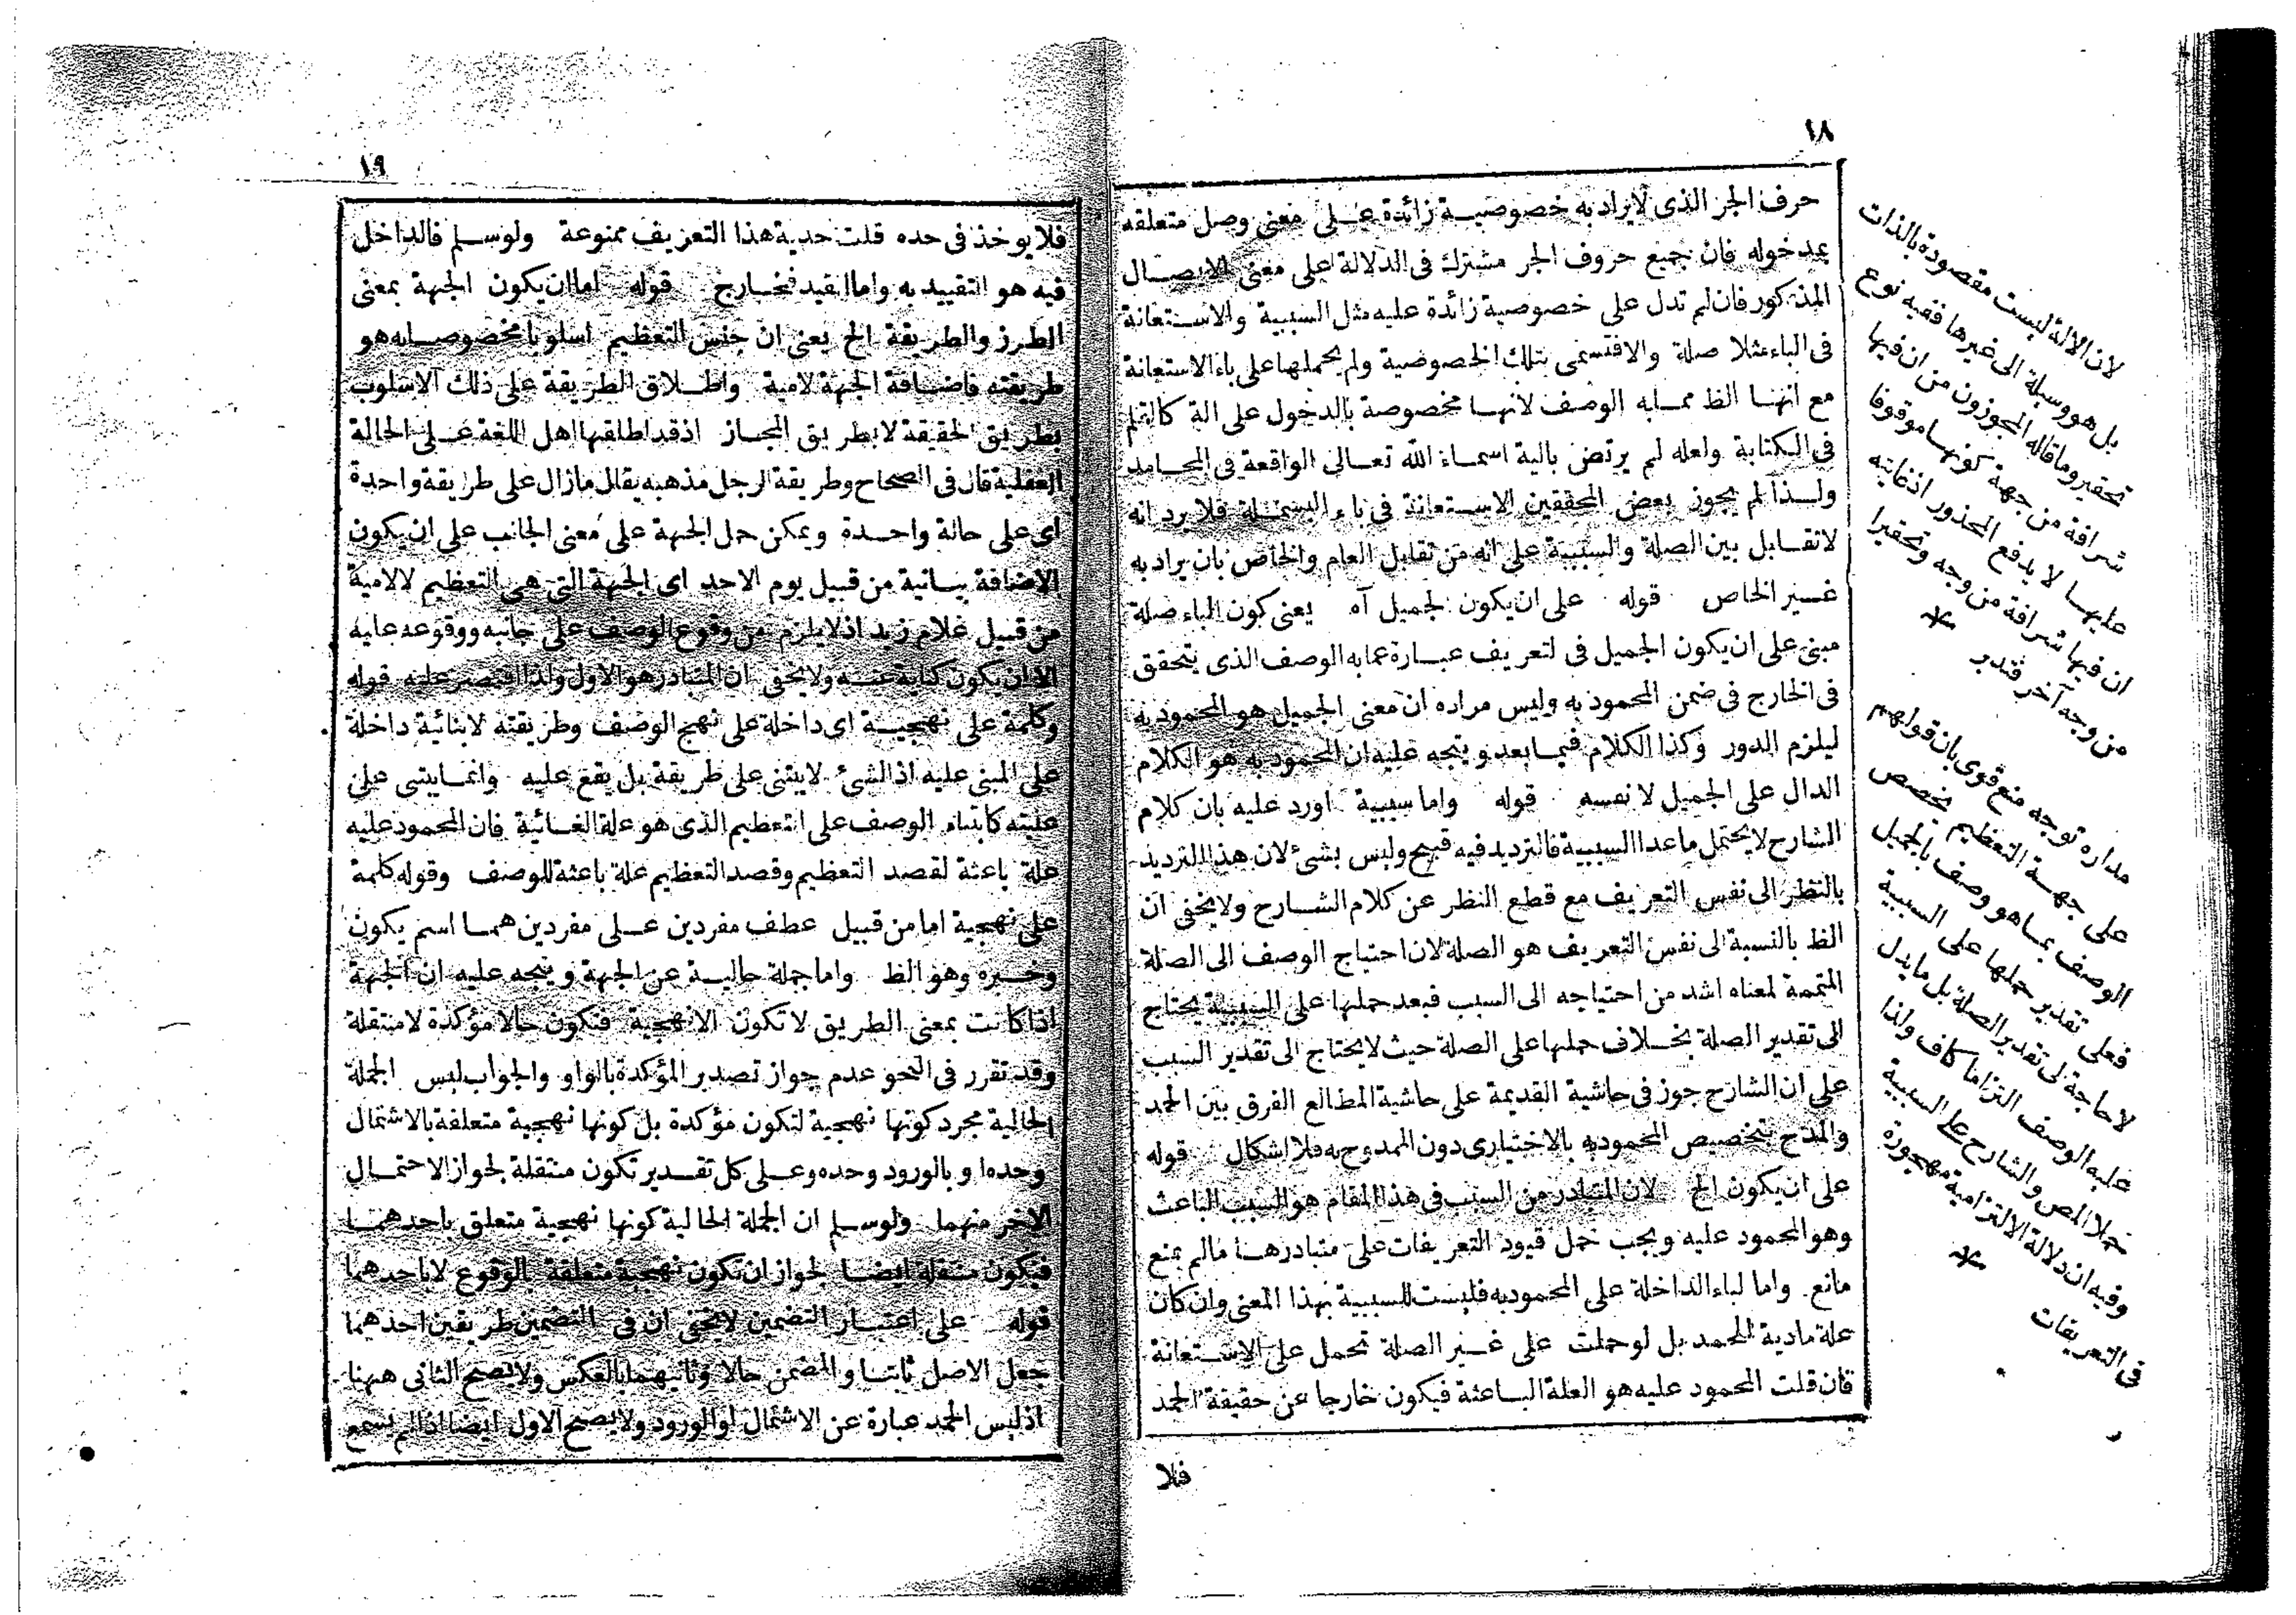 ١٨
حرف الجر الذى لا يراد به خصوصية زائدة على معنى وصل متعلقه
بمدخوله فان جميع حروف الجر مشترك فى الدلالة على معنى الاتصال
المذكور فان لم تدل على خصوصية زائدة عليه مثل السببية والاستعانة
فى الباء مثلا صلة والا فتسمى بتلك الخصوصية ولم يحملها على باء الاستعانة
مع انها الظ ممابه الوصف لانها مخصوصة بالدخول على الة كالقلم
فى الكتابة ولعله لم يرتض بالية اسماء الله تعالى الواقعة فى المحامد
ولذا لم يجوز بعض المحققين الاستعانة فى باء البسملة فلا يرد انه
لا تقابل بين الصلة والسببية على انه من تقابل العام والخاص بان يراد به
غير الخاص قوله على ان يكون لجميل آه يعنى كون الباء صلة
مبنى على ان يكون الجميل فى لتعريف عبارة عمابه الوصف الذى يتحقق
فى الخارج فى ضمن المحمود به وليس مراده ان معنى الجميل هو المحمود به
ليلزم الدور وكذا الكلام فيما بعد ويتجه عليه ان المحمود به هو الكلام
الدال على الجميل لا نفسه قوله واما سببية اورد عليه بان كلام
الشارح لا يحتمل ماعدا السببية فالترديد فيه قبيح وليس بشئ لان هذا الترديد
بالنظر الى نفس التعريف مع قطع النظر عن كلام الشارح ولا يخفى ان
الظ بالنسبة لى نفس التعريف هو الصلة لان احتياج الوصف الى الصلة
المتممة لمعناه اشد من احتياجه الى السبب فبعد حملها على السببية يحتاج
الى تقدير الصلة بخلاف حملها على الصلة حيث لا يحتاج الى تقدير السبب
على ان الشارح جوز فى حاشية القديمة على حاشية المطالع الفرق بين الحمد
والمدح بتخصيص المحمود به بالاختيارى دون الممدوح به فلا اشكال قوله
على ان يكون الخ لان المتبادر من السبب فى هذا المقام هو السبب الباعث
وهو المحمود عليه ويجب حمل قيود التعريفات على متبادرها مالم يمنع
مانع واما لباء الداخلة على المحمود به فليست للسببية بهذا المعنى وان كان
علة مادية للحمد بل لو حملت على غير الصلة تحمل على الاستعانة
فان قلت المحمود عليه هو العلة الباعثة فيكون خارجا عن حقيقة الحمد
فلا
لان الالة ليست مقصودة بالذات
بل هو وسيلة الى غيرها ففيه نوع
تحقير وما قاله المجوزون من ان فيها
شرافة من جهة كونها موقوفا
عليها لا يدفع المحذور اذ غايته
ان فيها شرافة من وجه وتحقيرا
من وجه آخر فتدبر
مداره توجه منع قوى بان قولهم
على جهة التعظيم يخصص
الوصف بما هو وصف بالجميل
فعلى تقدير حملها على السببية
لا حاجة لى تقدير الصلة بل ما يدل
عليه الوصف التزاما كاف ولذا
حملا المص والشارح على السببية
وفيه ان دلالة الالتزامية مهجورة
فى التعريفات
١٩
فلا يوخذ فى حده قلت حدية هذا التعريف ممنوعة ولو سلم فالداخل
فيه هو التقييد به واما القيد فخارج قوله اما ان يكون الجهة بمعنى
الطرز والطريقة الخ يعنى ان جنس التعظيم اسلوبا مخصوصا به هو
طريقته فاضافة الجهة لامية واطلاق الطريقة على ذلك الاسلوب
بطريق الحقيقة لا بطريق المجاز اذ قد اطلقها اهل اللغة على الحالة
العقلية قال فى الصحاح وطريقة الرجل مذهبه يقال مازال على طريقة واحدة
اى على حالة واحدة ويمكن حمل الجهة على معنى الجانب على ان يكون
الاضافة بيانية من قبيل يوم الاحد اى الجهة التى هى التعظيم لا لامية
من قبيل غلام زيد اذ لا يلزم من وقوع الوصف على جانبه ووقوعه عليه
الا ان يكون كناية عنه ولا يخفى ان المتبادر هو الاول ولذا اقتصر عليه قوله
وكلمة على نهجية اى داخلة على نهج الوصف وطريقته لا بنائية داخلة
على المبنى عليه اذ الشئ لا يبتنى على طريقة بل يقع عليه وانما يبتنى على
علته كابتناء الوصف على التعظيم الذى هو علة الغائية فان المحمود عليه
علة باعثة لقصد التعظيم وقصد التعظيم علة باعثة للوصف وقوله كلمة
على نهجية اما من قبيل عطف مفردين على مفردين هما اسم يكون
وخبره وهو الظ واما جملة حالية عن الجهة ويتجه عليه ان الجهة
اذا كانت بمعنى الطريق لا تكون الا نهجية فتكون حالا مؤكدة لا منتقلة
وقد تقرر فى النحو عدم جواز تصدير المؤكدة بالواو والجواب ليس الجملة
الحالية مجرد كونها نهجية لتكون مؤكدة بل كونها نهجية متعلقة بالاشتمال
وحده او بالورود وحده وعلى كل تقدير تكون منتقلة لجواز الاحتمال
الاخر منهما ولو سلم ان الجملة الحالية كونها نهجية متعلق باحدهما
فيكون منتقلة ايضا لجواز ان تكون نهجية متعلقة بالوقوع لا باحدهما
قوله على اعتبار التضمين لا يخفى ان فى التضمين طريقين احدهما
جعل الاصل ثابتا والمضمن حالا وثانيهما بالعكس ولا يصح الثانى ههنا
اذ ليس الحمد عبارة عن الاشتمال او الورود ولا يصح الاول ايضا اذ لم يسمع